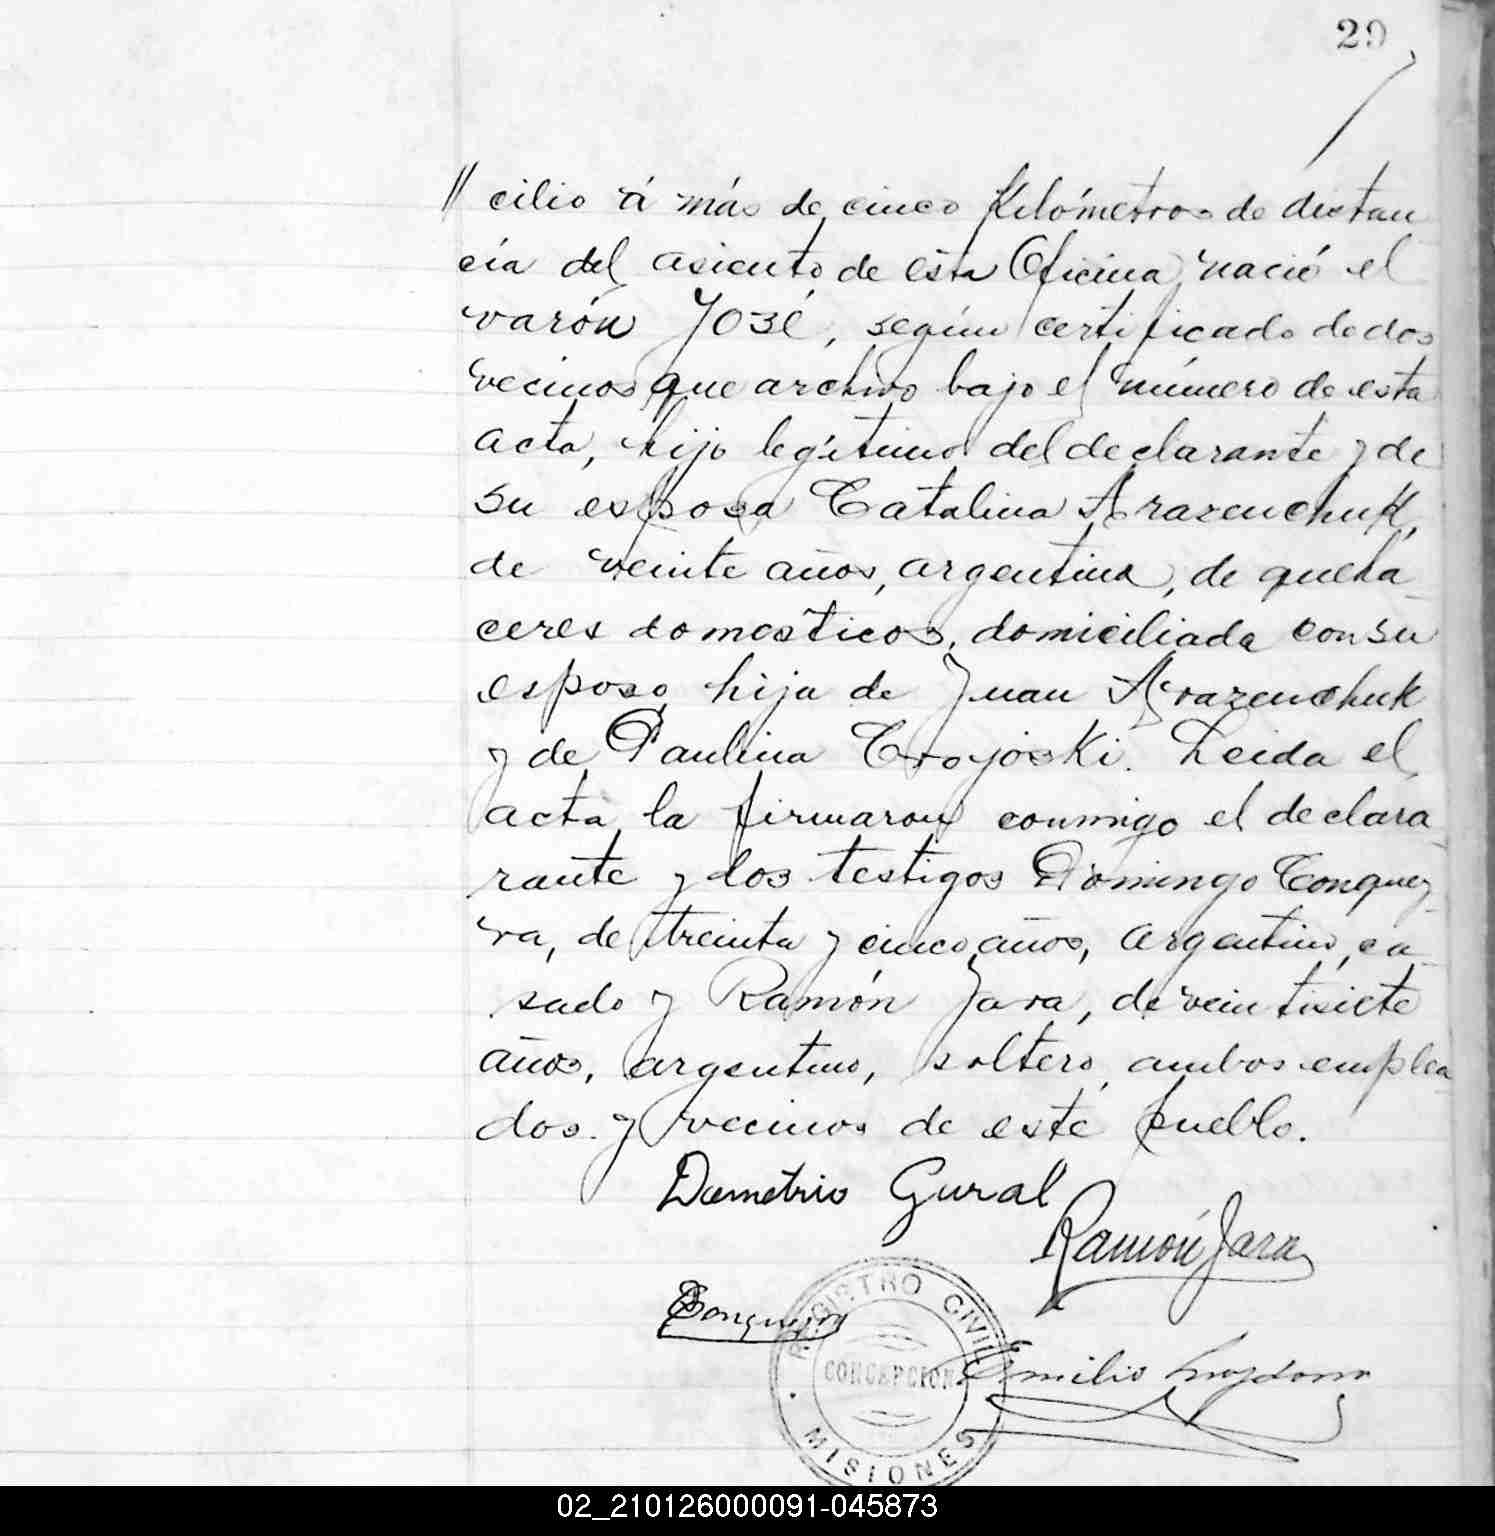 29
// cilio á más de cinco Kilómetros de distan
cia del asiento de esta Oficina nació el
varón José, según certificado de dos
vecinos que archivo bajo el número de esta
acta, hijo legítimo del declarante y de
su esposa Catalina Arazenchuk,
de veinte años, argentina, de queha_
ceres domesticos, domiciliada con su
esposo, hija de Juan Arazenchuk
y de Paulina Trojoski. Leida el
acta la firmaron conmigo el declara_
rante y los testigos Domingo Conquey_
ra, de treinta y cinco años, argentino, ca_
sado y Ramón Jara, de veintisiete
años, argentino, soltero, ambos emplea_
dos y vecinos de este pueblo.
Demetrio Gural
Ramón Jara
REGISTRO CIVIL
CONCEPCION
Emilio
MISIONES
02_210126000091-045873